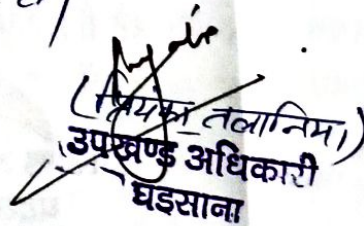 (प्रियंका तलानिया)
उपखण्ड अधिकारी
घड़साना